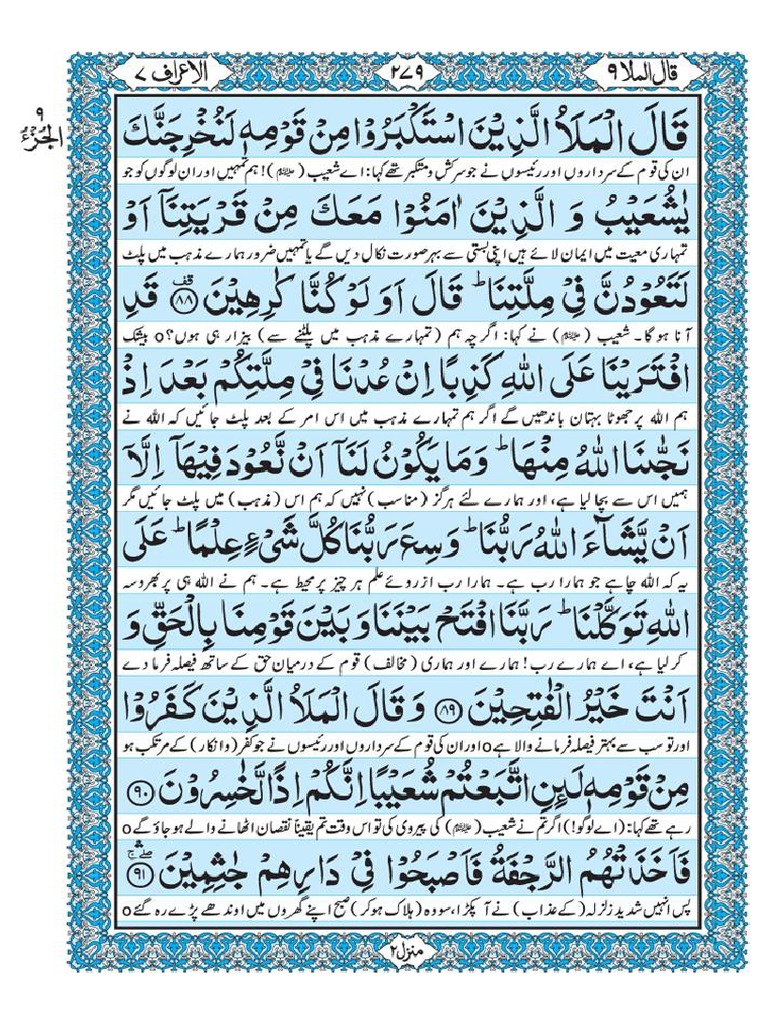 قال الملا ۹
۲۷۹
الاعراف ۷
۹
الجزء
قَالَ الْمَلَاُ الَّذِیْنَ اسْتَكْبَرُوْا مِنْ قَوْمِهٖ لَنُخْرِجَنَّكَ
ان کی قوم کے سرداروں اور رئیسوں نے جو سرکش و متکبر تھے کہا: اے شعیب (ﷺ)! ہم تمہیں اور ان لوگوں کو جو
یٰشُعَیْبُ وَ الَّذِیْنَ اٰمَنُوْا مَعَكَ مِنْ قَرْیَتِنَاۤ اَوْ
تمہاری معیت میں ایمان لائے ہیں اپنی بستی سے بہر صورت نکال دیں گے یا تمہیں ضرور ہمارے مذہب میں پلٹ
لَتَعُوْدُنَّ فِیْ مِلَّتِنَا ؕ قَالَ اَوَ لَوْ كُنَّا كٰرِهِیْنَ ۟ۚ۸۸ قَدِ
آنا ہو گا۔ شعیب (ﷺ) نے کہا: اگر چہ ہم (تمہارے مذہب میں پلٹنے سے) بیزار ہی ہوں؟ o بیشک
افْتَرَیْنَا عَلَی اللّٰهِ كَذِبًا اِنْ عُدْنَا فِیْ مِلَّتِكُمْ بَعْدَ اِذْ
ہم اللہ پر جھوٹا بہتان باندھیں گے اگر ہم تمہارے مذہب میں اس امر کے بعد پلٹ جائیں کہ اللہ نے
نَجّٰىنَا اللّٰهُ مِنْهَا ؕ وَ مَا یَكُوْنُ لَنَاۤ اَنْ نَّعُوْدَ فِیْهَاۤ اِلَّاۤ
ہمیں اس سے بچا لیا ہے، اور ہمارے لئے ہرگز (مناسب) نہیں کہ ہم اس (مذہب) میں پلٹ جائیں مگر
اَنْ یَّشَآءَ اللّٰهُ رَبُّنَا ؕ وَسِعَ رَبُّنَا كُلَّ شَیْءٍ عِلْمًا ؕ عَلَی
یہ کہ اللہ چاہے جو ہمارا رب ہے۔ ہمارا رب از روئے علم ہر چیز پر محیط ہے۔ ہم نے اللہ ہی پر بھروسہ
اللّٰهِ تَوَكَّلْنَا ؕ رَبَّنَا افْتَحْ بَیْنَنَا وَ بَیْنَ قَوْمِنَا بِالْحَقِّ وَ
کر لیا ہے، اے ہمارے رب! ہمارے اور ہماری (مخالف) قوم کے درمیان حق کے ساتھ فیصلہ فرما دے
اَنْتَ خَیْرُ الْفٰتِحِیْنَ ۸۹ وَ قَالَ الْمَلَاُ الَّذِیْنَ كَفَرُوْا
اور تو سب سے بہتر فیصلہ فرمانے والا ہے o اور ان کی قوم کے سرداروں اور رئیسوں نے جو کفر (و انکار) کے مرتکب ہو
مِنْ قَوْمِهٖ لَىِٕنِ اتَّبَعْتُمْ شُعَیْبًا اِنَّكُمْ اِذًا لَّخٰسِرُوْنَ ۹۰
رہے تھے کہا: (اے لوگو!) اگر تم نے شعیب (ﷺ) کی پیروی کی تو اس وقت تم یقیناً نقصان اٹھانے والے ہو جاؤ گے o
فَاَخَذَتْهُمُ الرَّجْفَةُ فَاَصْبَحُوْا فِیْ دَارِهِمْ جٰثِمِیْنَ ۹۱
پس انہیں شدید زلزلہ (کے عذاب) نے آ پکڑا، سو وہ (ہلاک ہو کر) صبح اپنے گھروں میں اوندھے پڑے رہ گئے o
منزل ۲